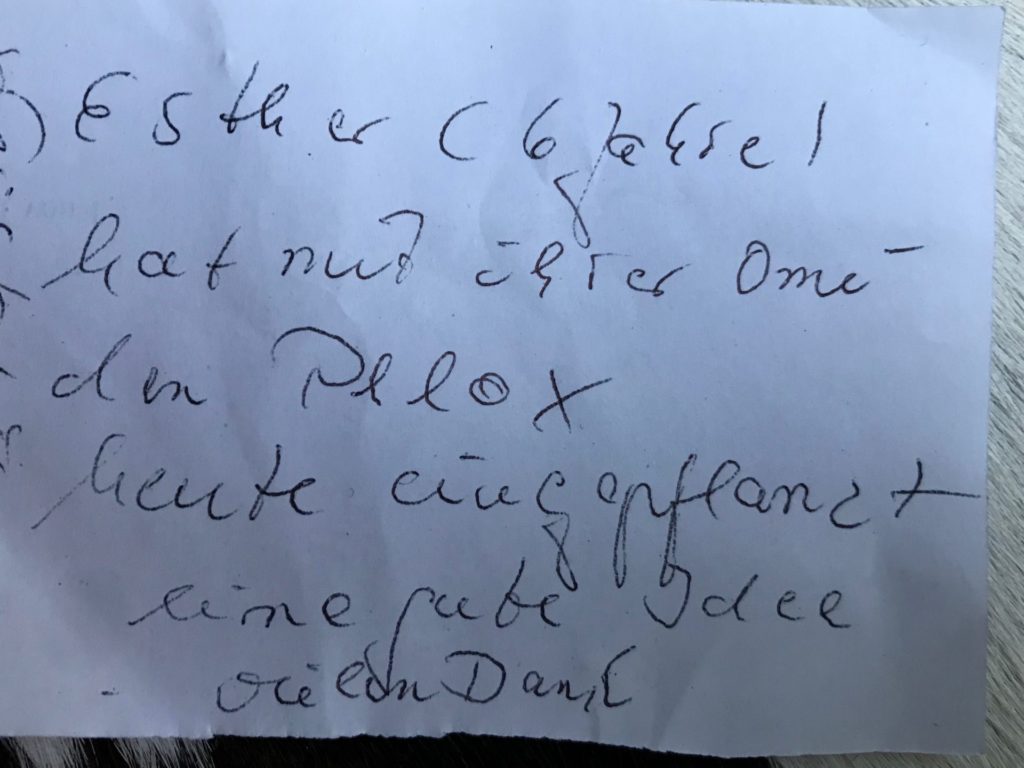 Esther (6 Jahre)
hat mit ihrer Omi
den Phlox
heute eingepflanzt
eine gute Idee
vielen Dank